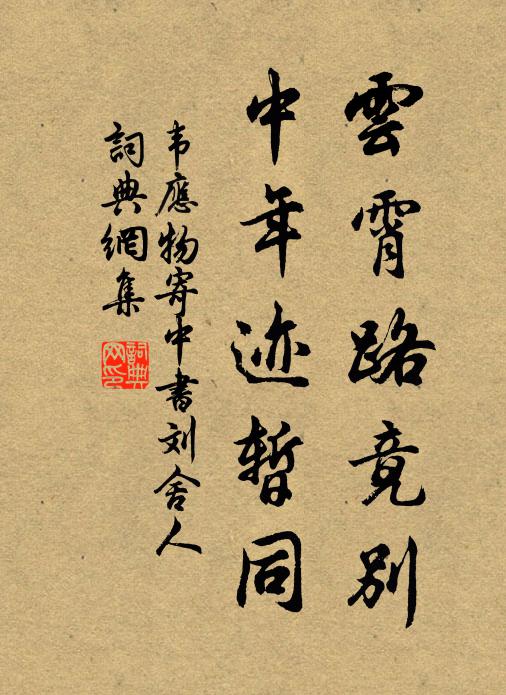 雲霄路竟別
中年迹暫同
韦應物寄中書刘舍人
詞典網集
詞典网印